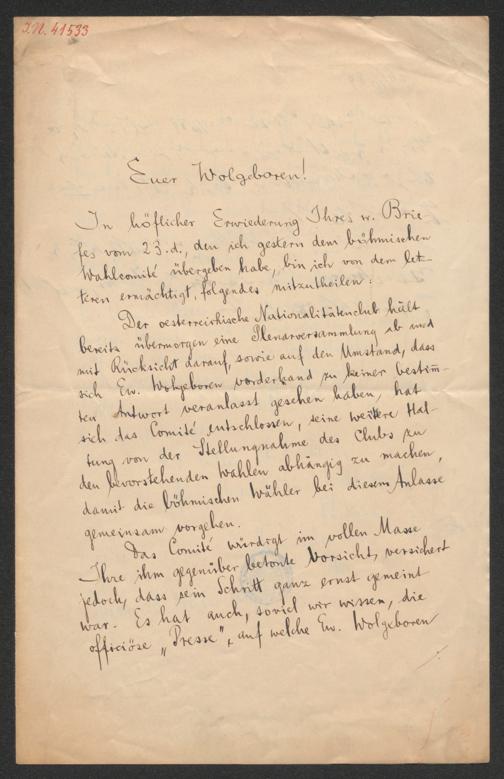 I.N. 41533
Euer Wolgeboren!
In höflicher Erwiederung Ihres w. Brie-
fes vom 23. d., den ich gestern dem böhmischen
Wahlcomité übergeben habe, bin ich von dem letz-
teren ermächtigt, folgendes mitzutheilen:
Der oesterreichische Nationalitätenclub hält
bereits übermorgen eine Plenarversammlung ab und
mit Rücksicht darauf, sowie auf den Umstand, dass
sich Ew. Wolgeboren vorderhand zu keiner bestimm-
ten Antwort veranlasst gesehen haben, hat
sich das Comité entschlossen, seine weitere Hal-
tung von der Stellungnahme des Clubs zu
den bevorstehenden Wahlen abhängig zu machen,
damit die böhmischen Wähler bei diesem Anlasse
gemeinsam vorgehen.
Das Comité würdigt im vollen Masse
Ihre ihm gegenüber betonte Vorsicht, versichert
jedoch, dass sein Schritt ganz ernst gemeint
war. Es hat auch, soviel wir wissen, die
officiöse „Presse", auf welche Ew. Wolgeboren